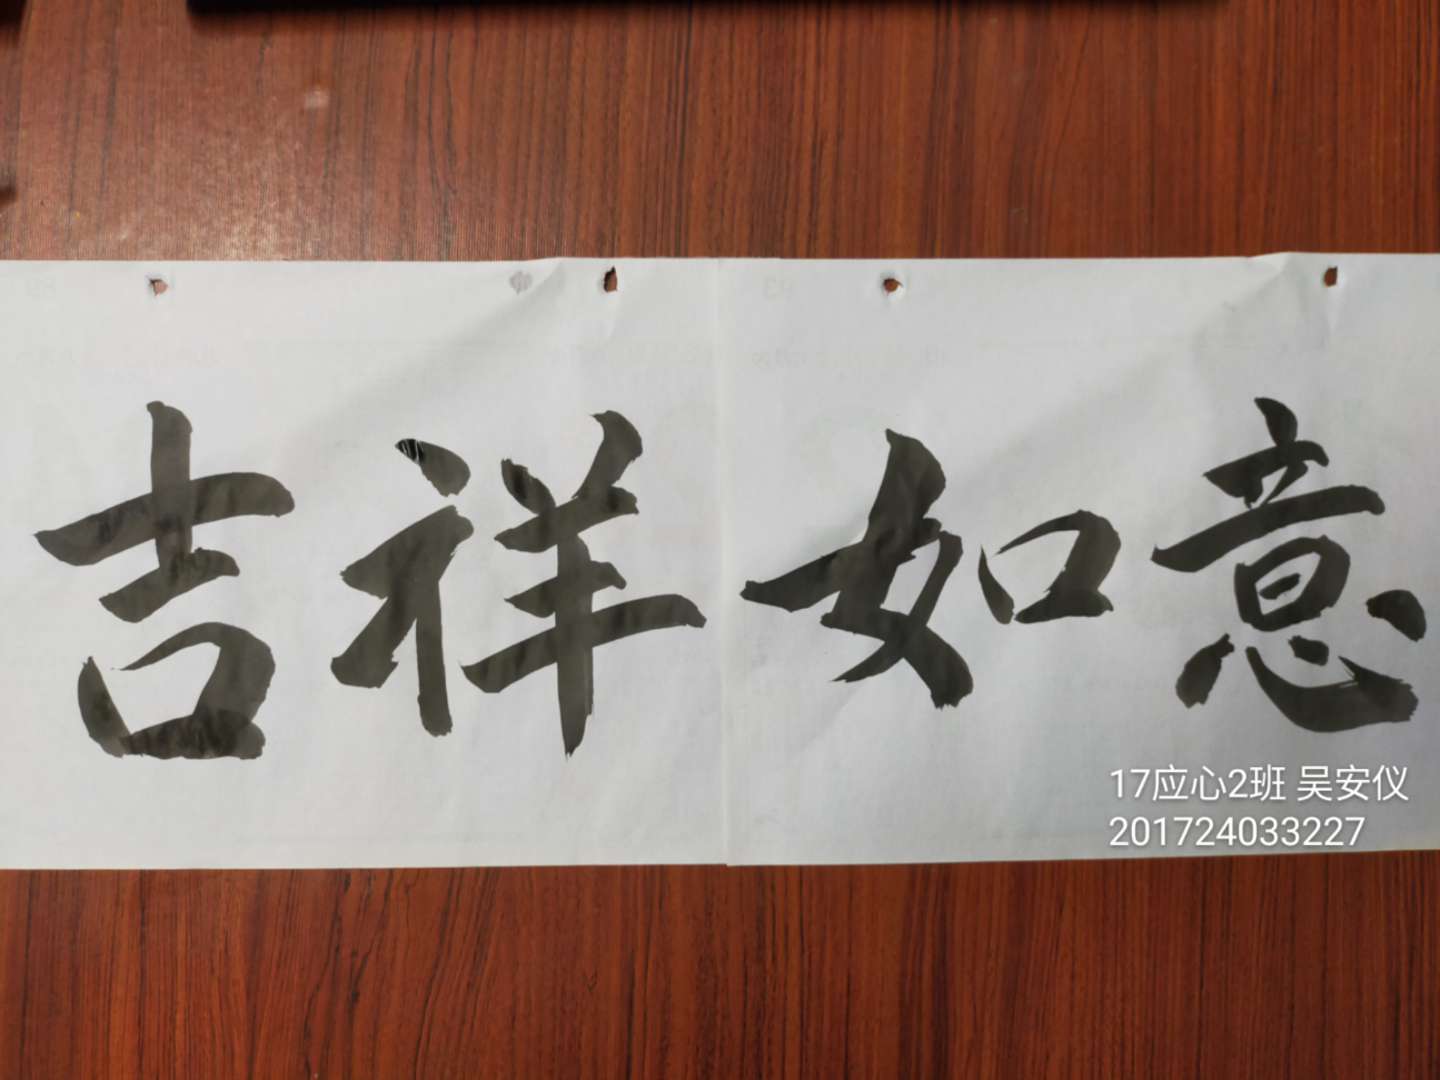 吉祥如意
17应心2班 吴安仪
201724033227